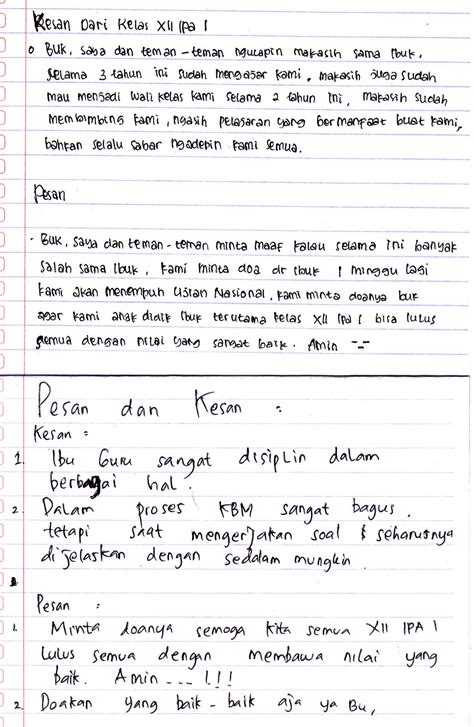 Kesan Dari Kelas XII IPA 1
o Buk, saya dan teman-teman ngucapin makasih sama Ibuk,
selama 3 tahun ini sudah mengajar kami, makasih juga sudah
mau menjadi wali kelas kami selama 2 tahun ini, makasih sudah
membimbing kami, ngasih pelajaran yang bermanfaat buat kami,
bahkan selalu sabar ngadepin kami semua.
Pesan
- Buk, saya dan teman-teman minta maaf kalau selama ini banyak
salah sama Ibuk, kami minta doa dr Ibuk 1 minggu lagi
kami akan menempuh Ujian Nasional, kami minta doanya buk
agar kami anak didik Ibuk terutama kelas XII IPA 1 bisa lulus
semua dengan nilai yang sangat baik. Amin -_-
Pesan dan Kesan :
Kesan :
1. Ibu Guru sangat disiplin dalam
berbagai hal.
2. Dalam proses KBM sangat bagus,
tetapi saat mengerjakan soal seharusnya
dijelaskan dengan sedalam mungkin.
Pesan :
1. Minta doanya semoga kita semua XII IPA 1
lulus semua dengan membawa nilai yang
baik. Amin --- !!!
2. Doakan yang baik-baik aja ya Bu,